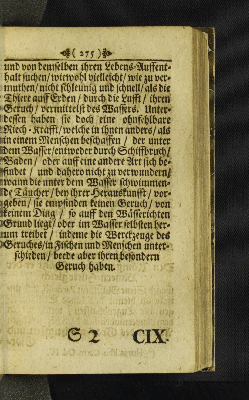 ( 275 )
und von demselben ihren Lebens-Auffent-
halt suchen / wiewohl vielleicht / wie zu ver-
muthen / nicht so schleunig und schnell / als die
Thiere auff Erden / durch die Lufft / ihren
Geruch / vermittelst des Wassers. Unter-
dessen haben sie doch eine ohnfehlbare
Riech-Krafft / welche in ihnen anders / als
in einem Menschen beschaffen / der unter
dem Wasser / entweder durch Schiffbruch /
Baden / oder auff eine andere Art sich be-
findet / und dahero nicht zu verwundern /
wann die unter dem Wasser schwimmen-
de Taucher / bey ihrer Herauskunfft / vor-
geben / sie empfinden keinen Geruch / von
keinem Ding / so auff den Wasserichten
Grund liegt / oder im Wasser selbsten her-
um treibet / indeme die Werckzeuge des
Geruches / in Fischen und Menschen unter-
schieden / beede aber ihren besondern
Geruch haben.
S 2 CIX.